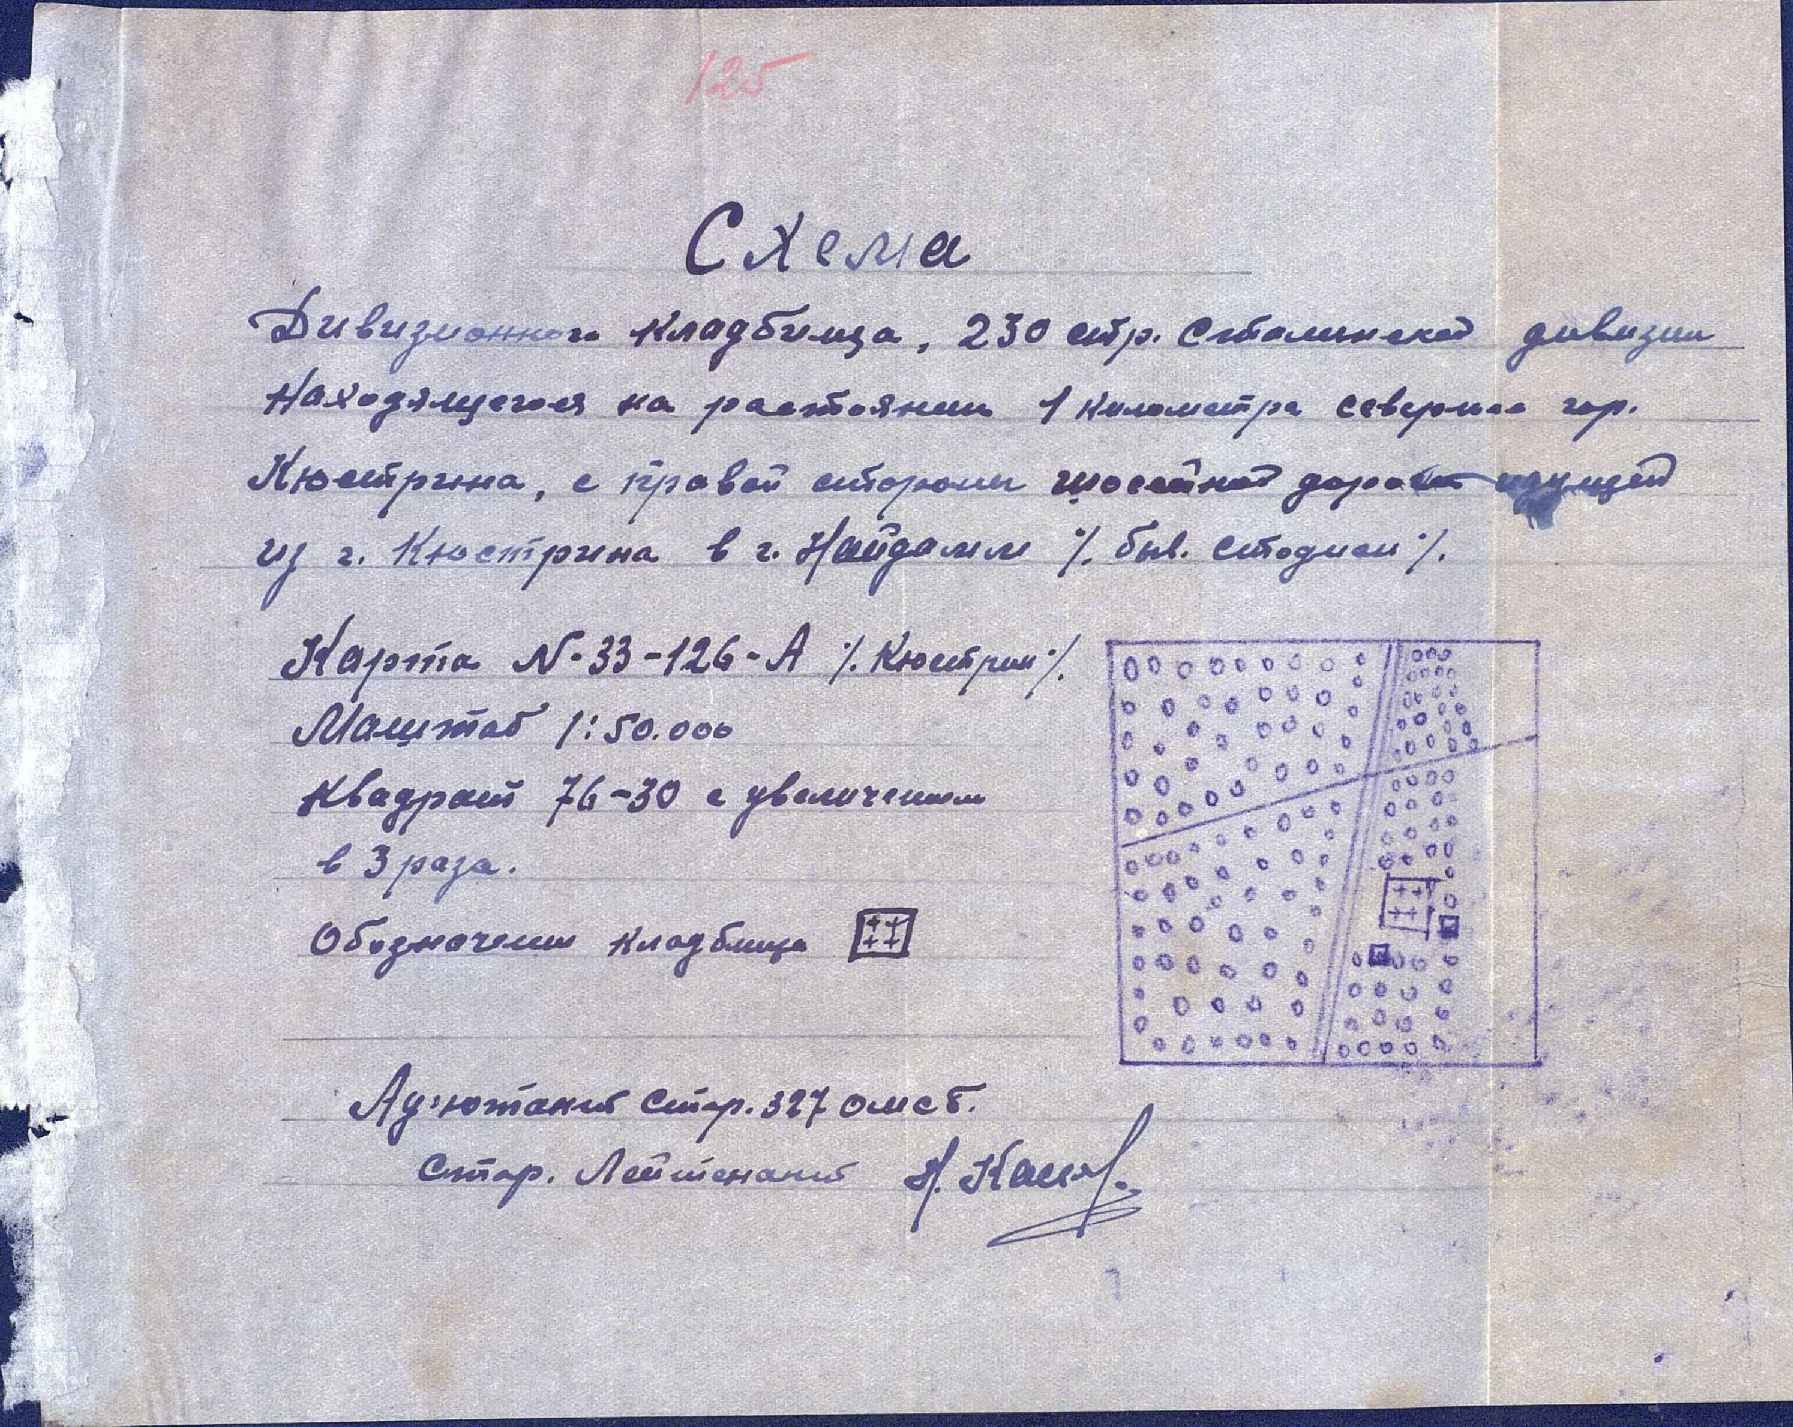 125
Схема
Дивизионного кладбища, 230 стр. Сталинской дивизии
находящегося на растоянии 1 километра севернее гор.
Кюстрина, с правой стороны шоссейной дороги идущей
из г. Кюстрина в г. Найдамм ·/. быв. стадион ·/.
Карта N-33-126-А ·/. Кюстрин ·/.
Масштаб 1:50.000
Квадрат 76-30 с увеличением
в 3 раза.
Обозначение кладбища
Адъютант стар. 327 омсб.
Стар. Лейтенант